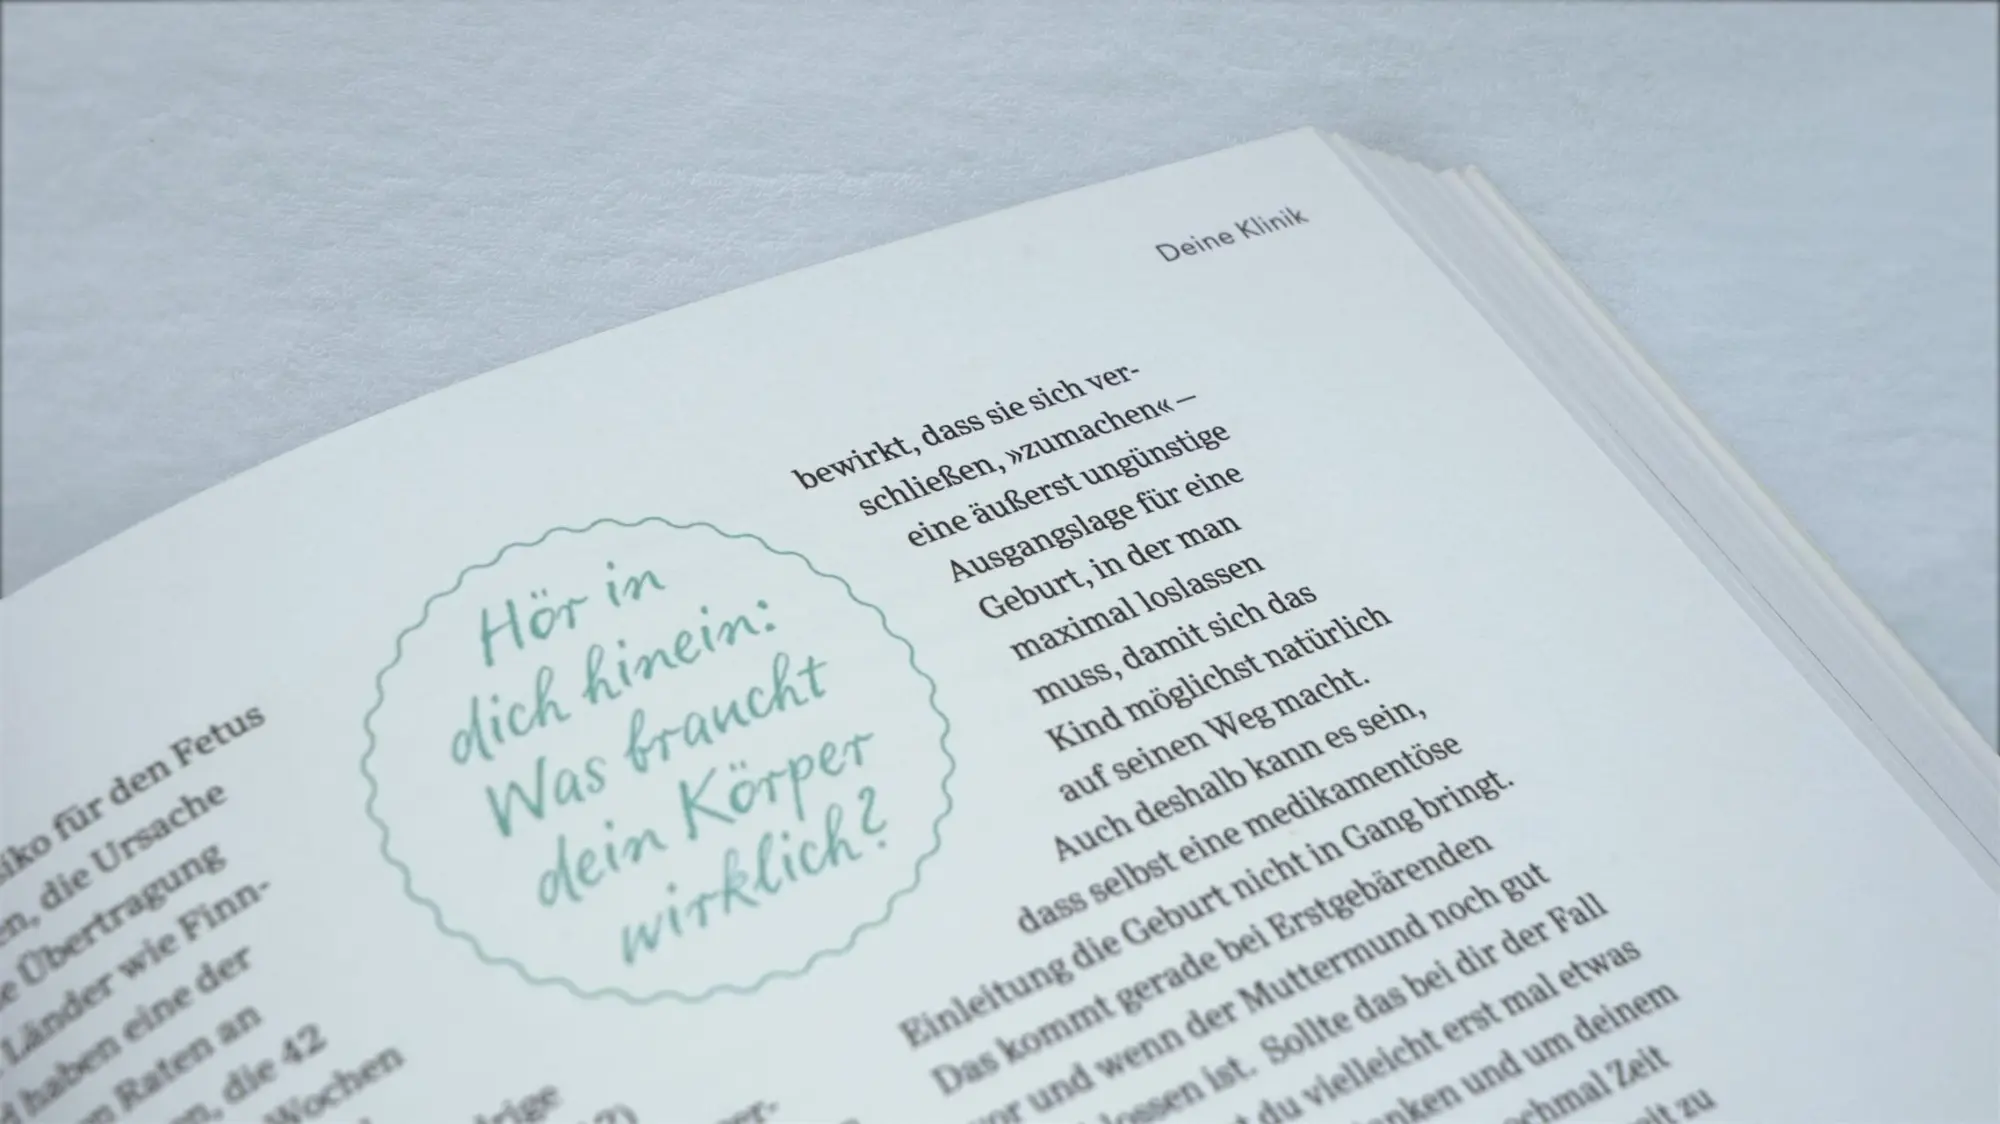 Deine Klinik
für den Fetus
die Ursache
Übertragung
Länder wie Finn-
haben eine der
Raten an
die 42
Wochen
Hör in
dich hinein:
Was braucht
dein Körper
wirklich?
bewirkt, dass sie sich ver-
schließen, »zumachen« –
eine äußerst ungünstige
Ausgangslage für eine
Geburt, in der man
maximal loslassen
muss, damit sich das
Kind möglichst natürlich
auf seinen Weg macht.
Auch deshalb kann es sein,
dass selbst eine medikamentöse
Einleitung die Geburt nicht in Gang bringt.
Das kommt gerade bei Erstgebärenden
vor und wenn der Muttermund noch gut
ist. Sollte das bei dir der Fall
du vielleicht erst mal etwas
und um deinem
Zeit
zu